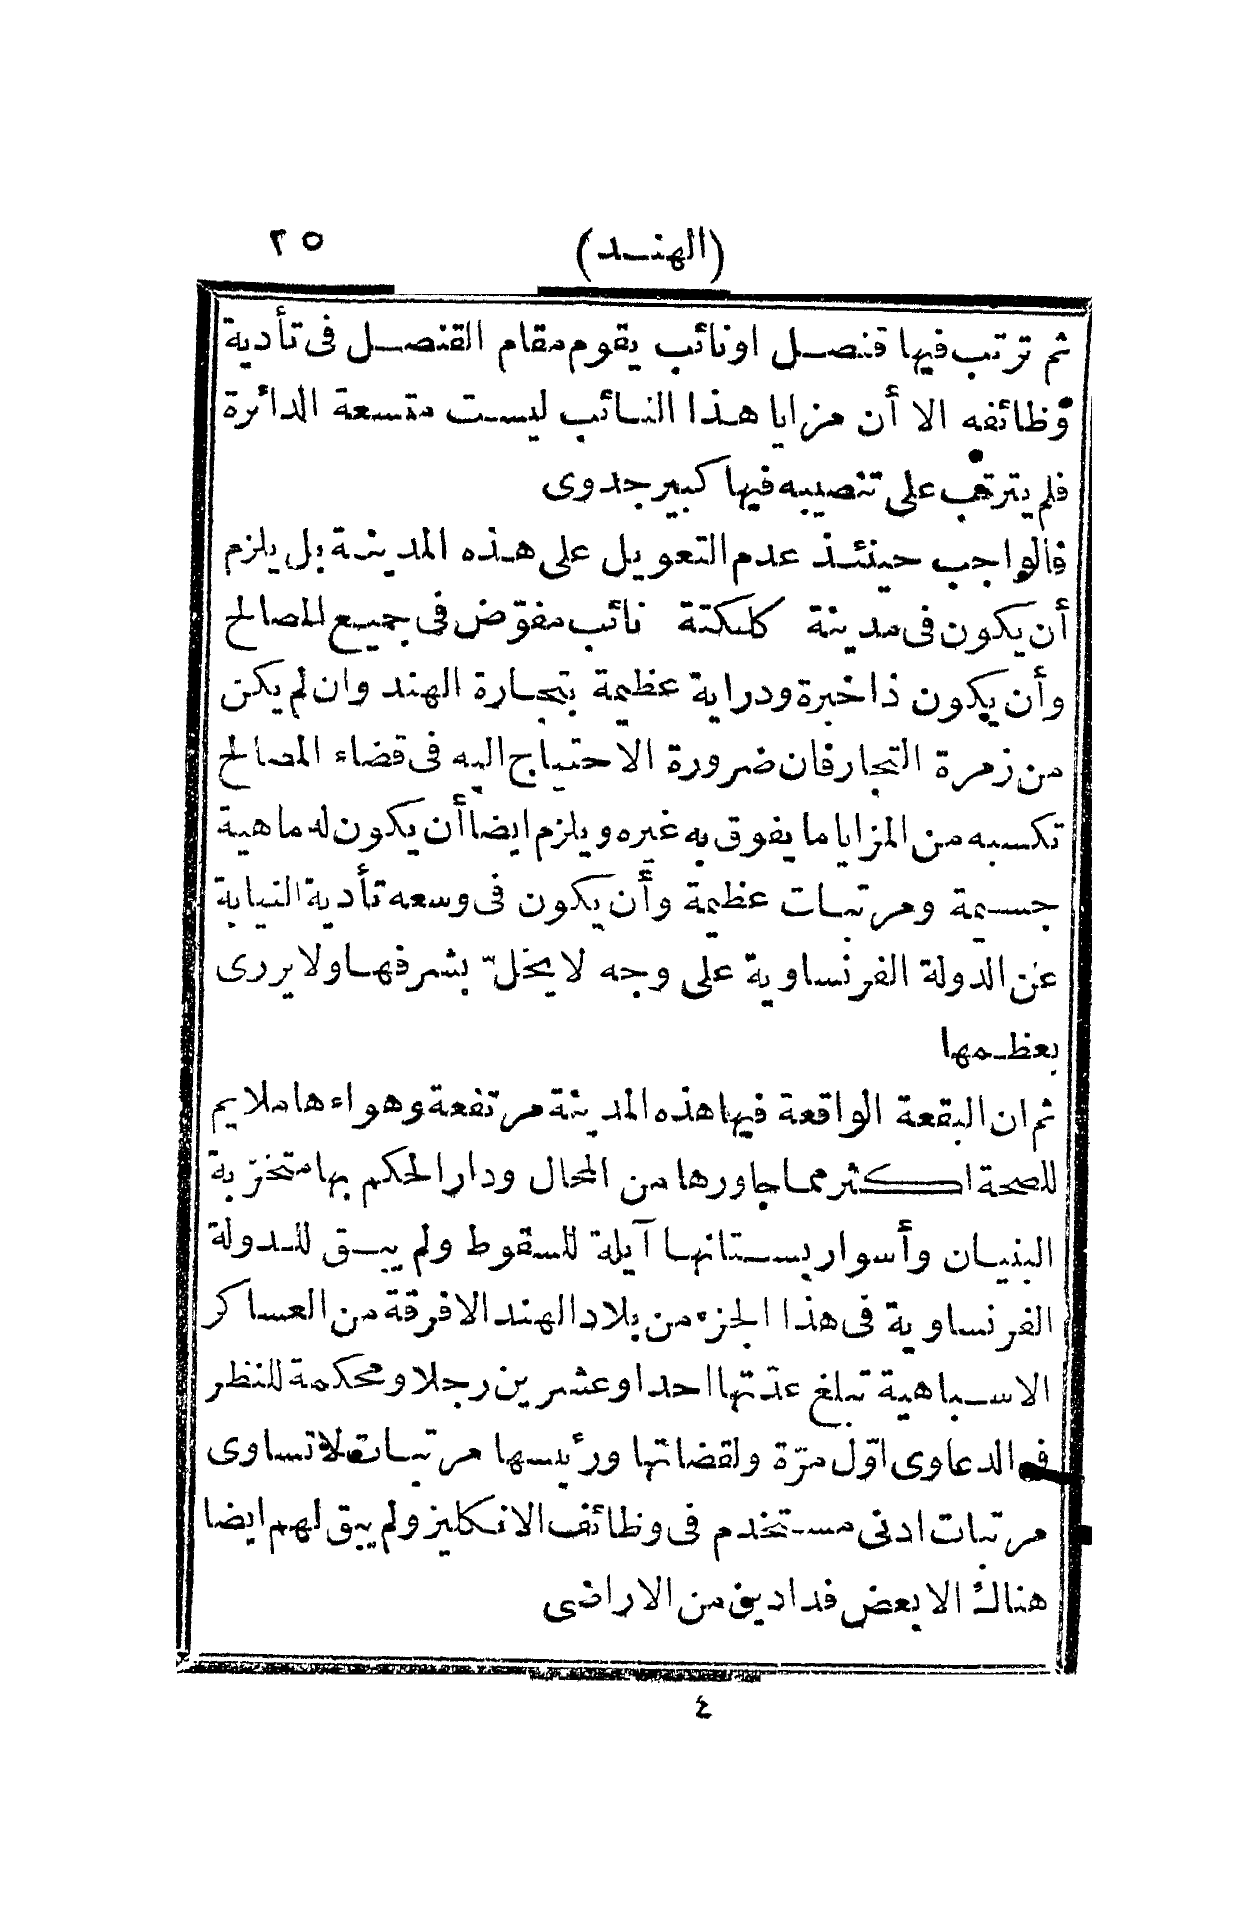 (الهند) ٢٥
ثم ترتب فيها قنصل او نائب يقوم مقام القنصل فى تأدية
وظائفه الا أن مزايا هذا النائب ليست متسعة الدائرة
فلم يترتب على تنصيبه فيها كبير جدوى
فالواجب حينئذ عدم التعويل على هذه المدينة بل يلزم
أن يكون فى مدينة كلكتة نائب مفوّض فى جميع المصالح
وأن يكون ذا خبرة ودراية عظيمة بتجارة الهند وان لم يكن
من زمرة التجار فان ضرورة الاحتياج اليه فى قضاء المصالح
تكسبه من المزايا ما يفوق به غيره ويلزم ايضا أن يكون له ماهية
جسيمة ومرتبات عظيمة وأن يكون فى وسعه تأدية النيابة
عن الدولة الفرنساوية على وجه لا يخلّ بشرفها ولا يزرى
بعظمها
ثم ان البقعة الواقعة فيها هذه المدينة مرتفعة وهواءها ملايم
للصحة اكثر مما جاورها من المحال ودار الحكم بها متخرّبة
البنيان وأسوار بستانها آيلة للسقوط ولم يبق للدولة
الفرنساوية فى هذا الجزء من بلاد الهند الا فرقة من العساكر
الاسباهية تبلغ عدّتها احدا وعشرين رجلا ومحكمة للنظر
فى الدعاوى اوّل مرّة ولقضاتها ورئيسها مرتبات لا تساوى
مرتبات ادنى مستخدم فى وظائف الانكليز ولم يبق لهم ايضا
هناك الا بعض فدادين من الاراضى
٤